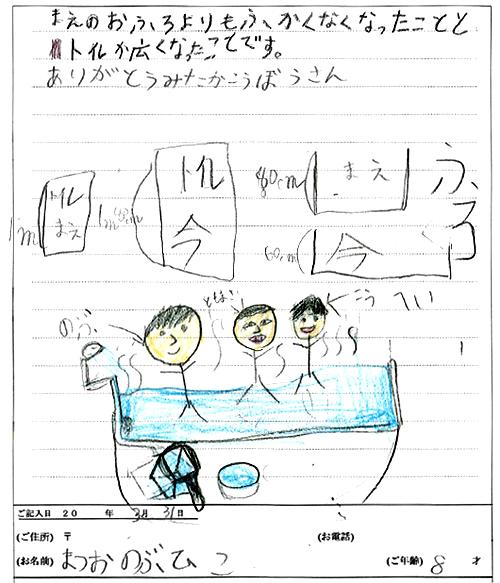 まえのおふろよりもふかくなくなったことと
トイレが広くなったことです。
ありがとうみたかこうぼうさん
トイレ
まえ
1m
トイレ
今
80cm
まえ
60cm
今
ふろ
のぶ
こうへい
ご記入日 20 年 3月 31日
(ご住所) 〒
(お電話)
(お名前) まつおのぶひこ
(ご年齢) 8 才